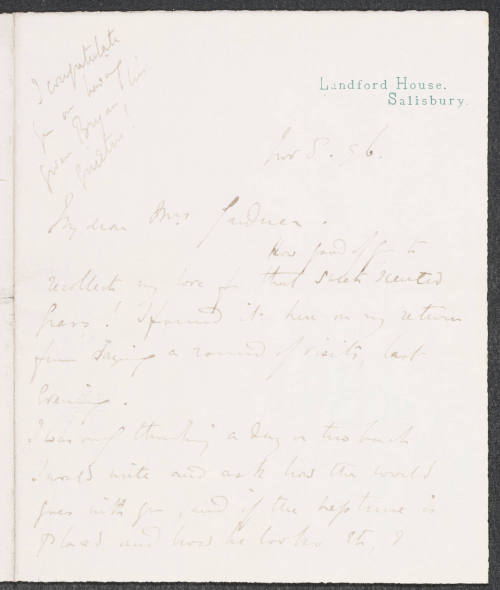 I congratulate
you on having
given Bryan his
quietus!
Landford House,
Salisbury.
Nov 8. 96.
My dear Mrs Gardner.
How good of you to
recollect my love of that sweet scented
Grass! I found it here on my return
from paying a round of visits, last
Evening.
I was only thinking a day or two back
I would write and ask how the world
goes with you, and if the Neptune is
placed and how he looks etc?